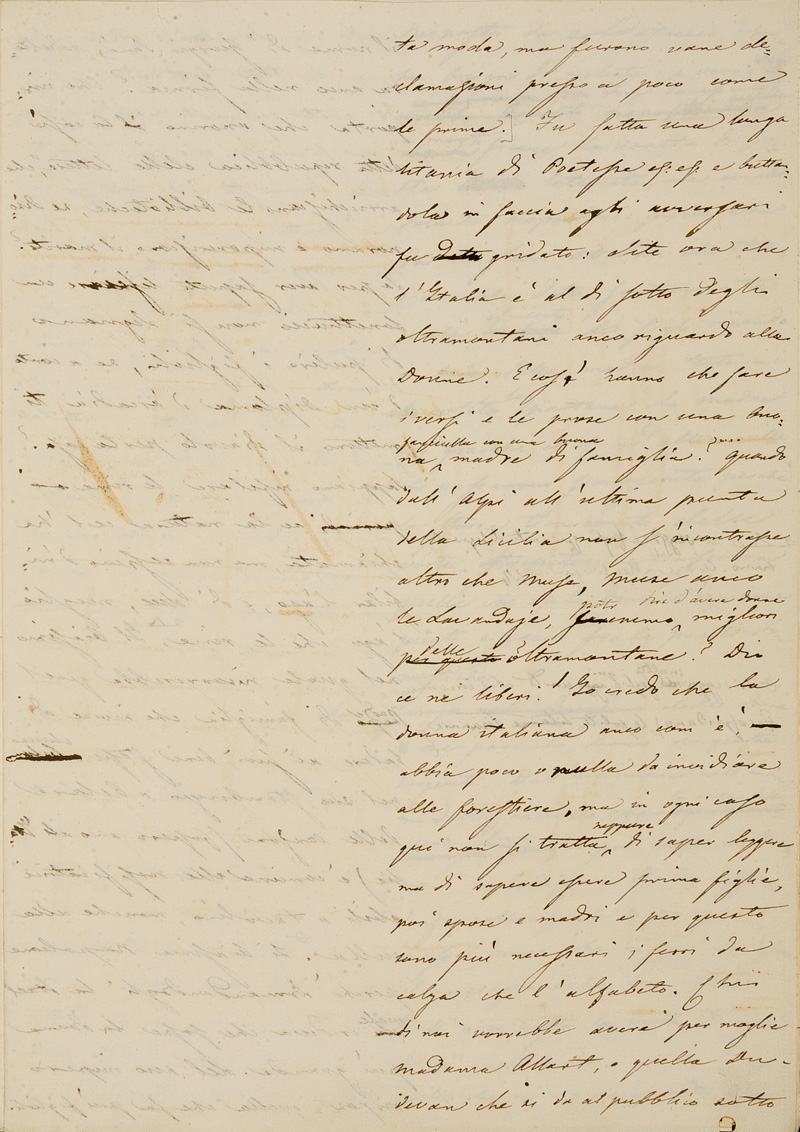 ta moda, ma furono vane de-
clamazioni presso a poco come
le prime.] Fu fatta una lunga
litania di Poetesse es: es: e butta-
dola in faccia agli avversari
fu detto gridato: dite ora che
l'Italia è al di sotto degli
oltramontani anco riguardo alle
Donne. E così hanno che fare
i versi e le prose con una buo-
fanciulla con una buona
na madre di famiglia? quando
dall'Alpi all'ultima punta
della Sicilia non s'incontrasse
altro che Muse, Muse anco
le Lavandaje, dire d'avere donne
saremmo migliori
delle
per questo oltramontane? Dio
ce ne liberi! Io credo che la
donna italiana anco com'è,
abbia poco o nulla da invidiare
alle forestiere, ma in ogni caso
neppure
qui non si tratta di saper leggere
ma di sapere essere prima figlie,
poi spose e madri e per questo
sono più necessari i ferri da
calza che l'alfabeto. Chi
di noi vorrebbe avere per moglie
madama Allart, o quella Du-
devan che si dà al pubblico sotto